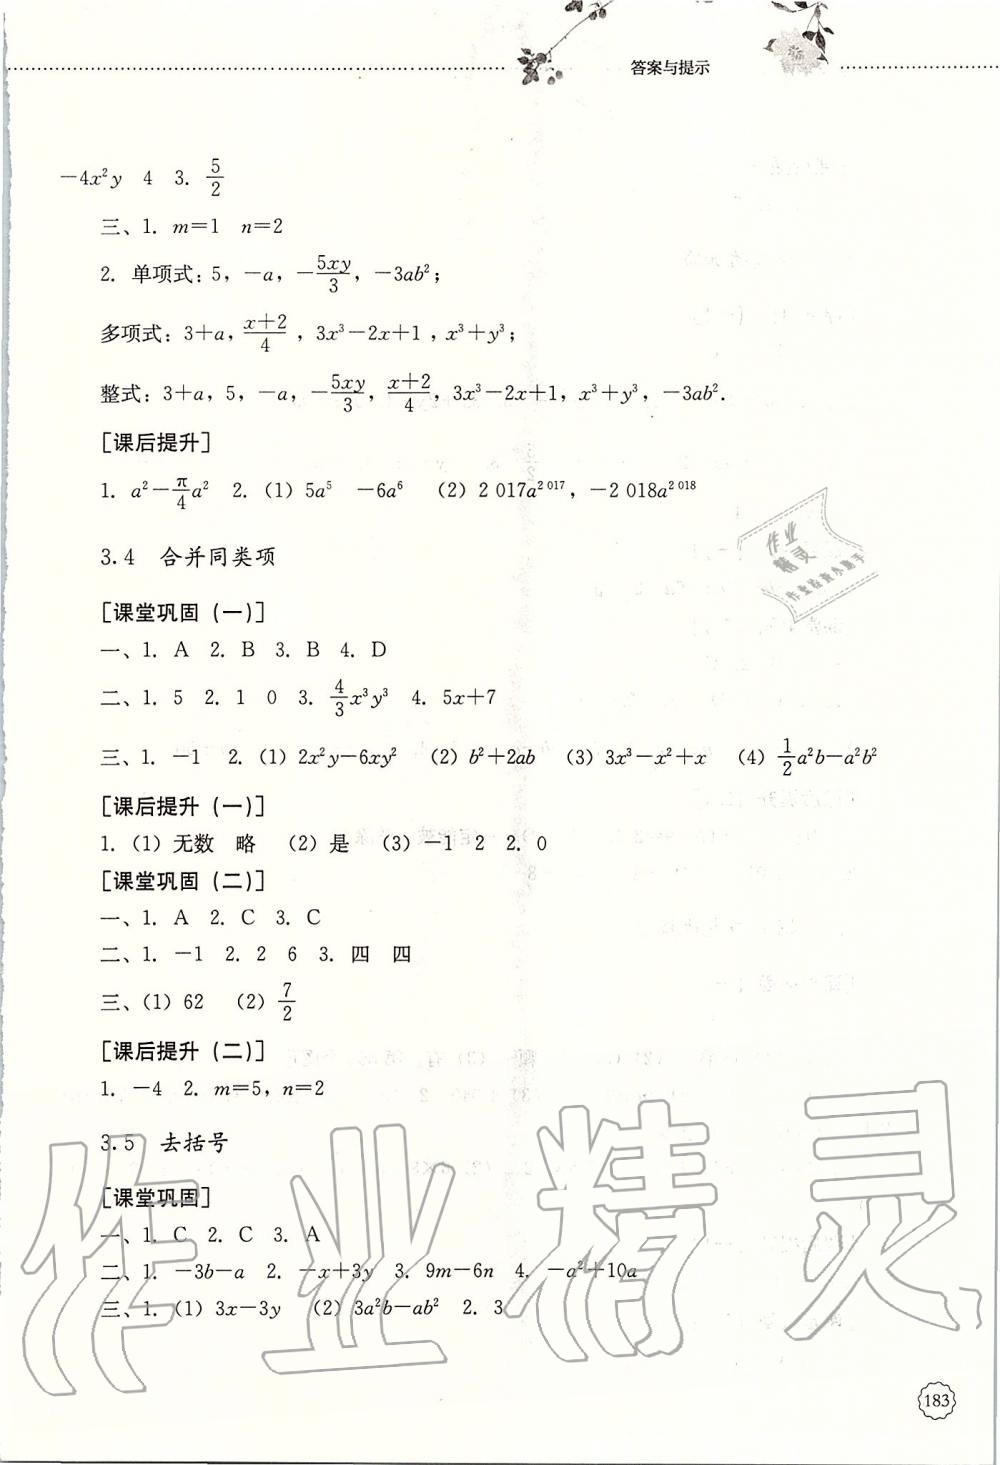 答案与提示
－4x²y　4　3. 5/2
三、1. m＝1　n＝2
2. 单项式：5，－a，－5xy/3，－3ab²；
多项式：3＋a，(x＋2)/4，3x³－2x＋1，x³＋y³；
整式：3＋a，5，－a，－5xy/3，(x＋2)/4，3x³－2x＋1，x³＋y³，－3ab².
［课后提升］
1. a²－π/4 a²　2.（1）5a⁵　－6a⁶　（2）2 017a²⁰¹⁷，－2 018a²⁰¹⁸
3.4　合并同类项
［课堂巩固（一）］
一、1. A　2. B　3. B　4. D
二、1. 5　2. 1　0　3. 4/3 x³y³　4. 5x＋7
三、1. －1　2.（1）2x²y－6xy²　（2）b²＋2ab　（3）3x³－x²＋x　（4）1/2 a²b－a²b²
［课后提升（一）］
1.（1）无数　略　（2）是　（3）－1　2　2. 0
［课堂巩固（二）］
一、1. A　2. C　3. C
二、1. －1　2. 2　6　3. 四　四
三、（1）62　（2）7/2
［课后提升（二）］
1. －4　2. m＝5，n＝2
3.5　去括号
［课堂巩固］
一、1. C　2. C　3. A
二、1. －3b－a　2. －x＋3y　3. 9m－6n　4. －a²＋10a
三、1.（1）3x－3y　（2）3a²b－ab²　2. 3
183
作业
精灵
作业检查小助手
作业精灵